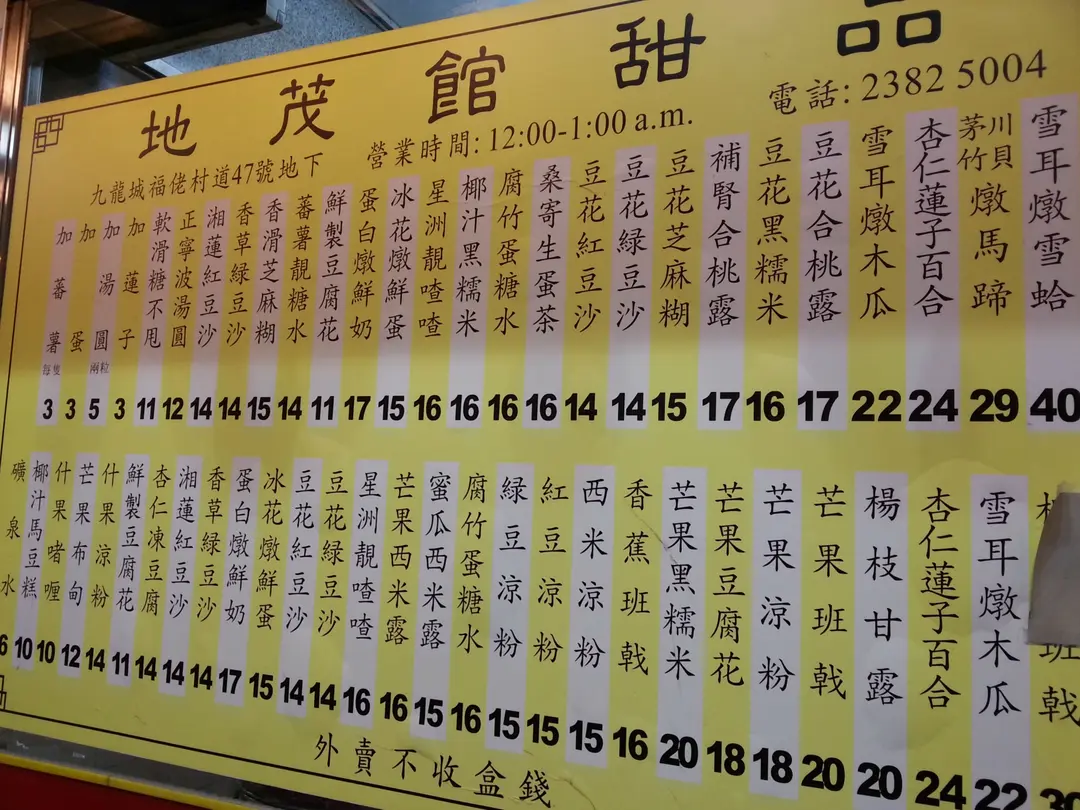 地茂館甜品
九龍城福佬村道47號地下 營業時間: 12:00-1:00 a.m. 電話: 2382 5004
雪耳燉雪蛤 40
川貝茅竹燉馬蹄 29
杏仁蓮子百合 24
雪耳燉木瓜 22
豆花合桃露 17
豆花黑糯米 16
補腎合桃露 17
豆花芝麻糊 15
豆花綠豆沙 14
豆花紅豆沙 14
桑寄生蛋茶 16
腐竹蛋糖水 16
椰汁黑糯米 16
星洲靚喳喳 16
冰花燉鮮蛋 15
蛋白燉鮮奶 17
鮮製豆腐花 11
蕃薯靚糖水 14
香滑芝麻糊 15
香草綠豆沙 14
湘蓮紅豆沙 14
正寧波湯圓 12
軟滑糖不甩 11
加蓮子 3
加湯圓 兩粒 5
加蛋 3
加蕃薯 每隻 3
班戟
雪耳燉木瓜 22
杏仁蓮子百合 24
楊枝甘露 20
芒果班戟 20
芒果涼粉 18
芒果豆腐花 18
芒果黑糯米 20
香蕉班戟 16
西米涼粉 15
紅豆涼粉 15
綠豆涼粉 15
腐竹蛋糖水 16
蜜瓜西米露 15
芒果西米露 16
星洲靚喳喳 16
豆花綠豆沙 14
豆花紅豆沙 14
冰花燉鮮蛋 15
蛋白燉鮮奶 17
香草綠豆沙 14
湘蓮紅豆沙 14
杏仁凍豆腐 14
鮮製豆腐花 11
什果涼粉 14
芒果布甸 12
什果啫喱 10
椰汁馬豆糕 10
礦泉水 6
外賣不收盒錢